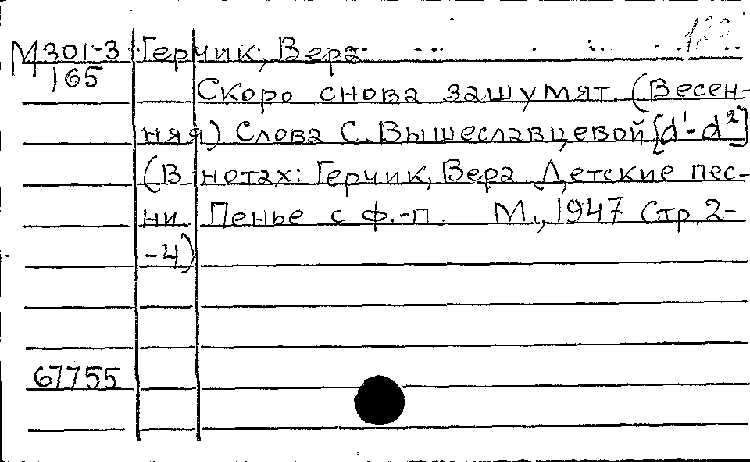 М301-3 Герчик, Вера
165
Скоро снова зашумят. (Весен-
няя) Слова С. Вышеславцевой [d¹-d²]
(В нотах: Герчик, Вера Детские пес-
ни. Пенье с ф.-п. М., 1947 Стр. 2-
-4)
67755